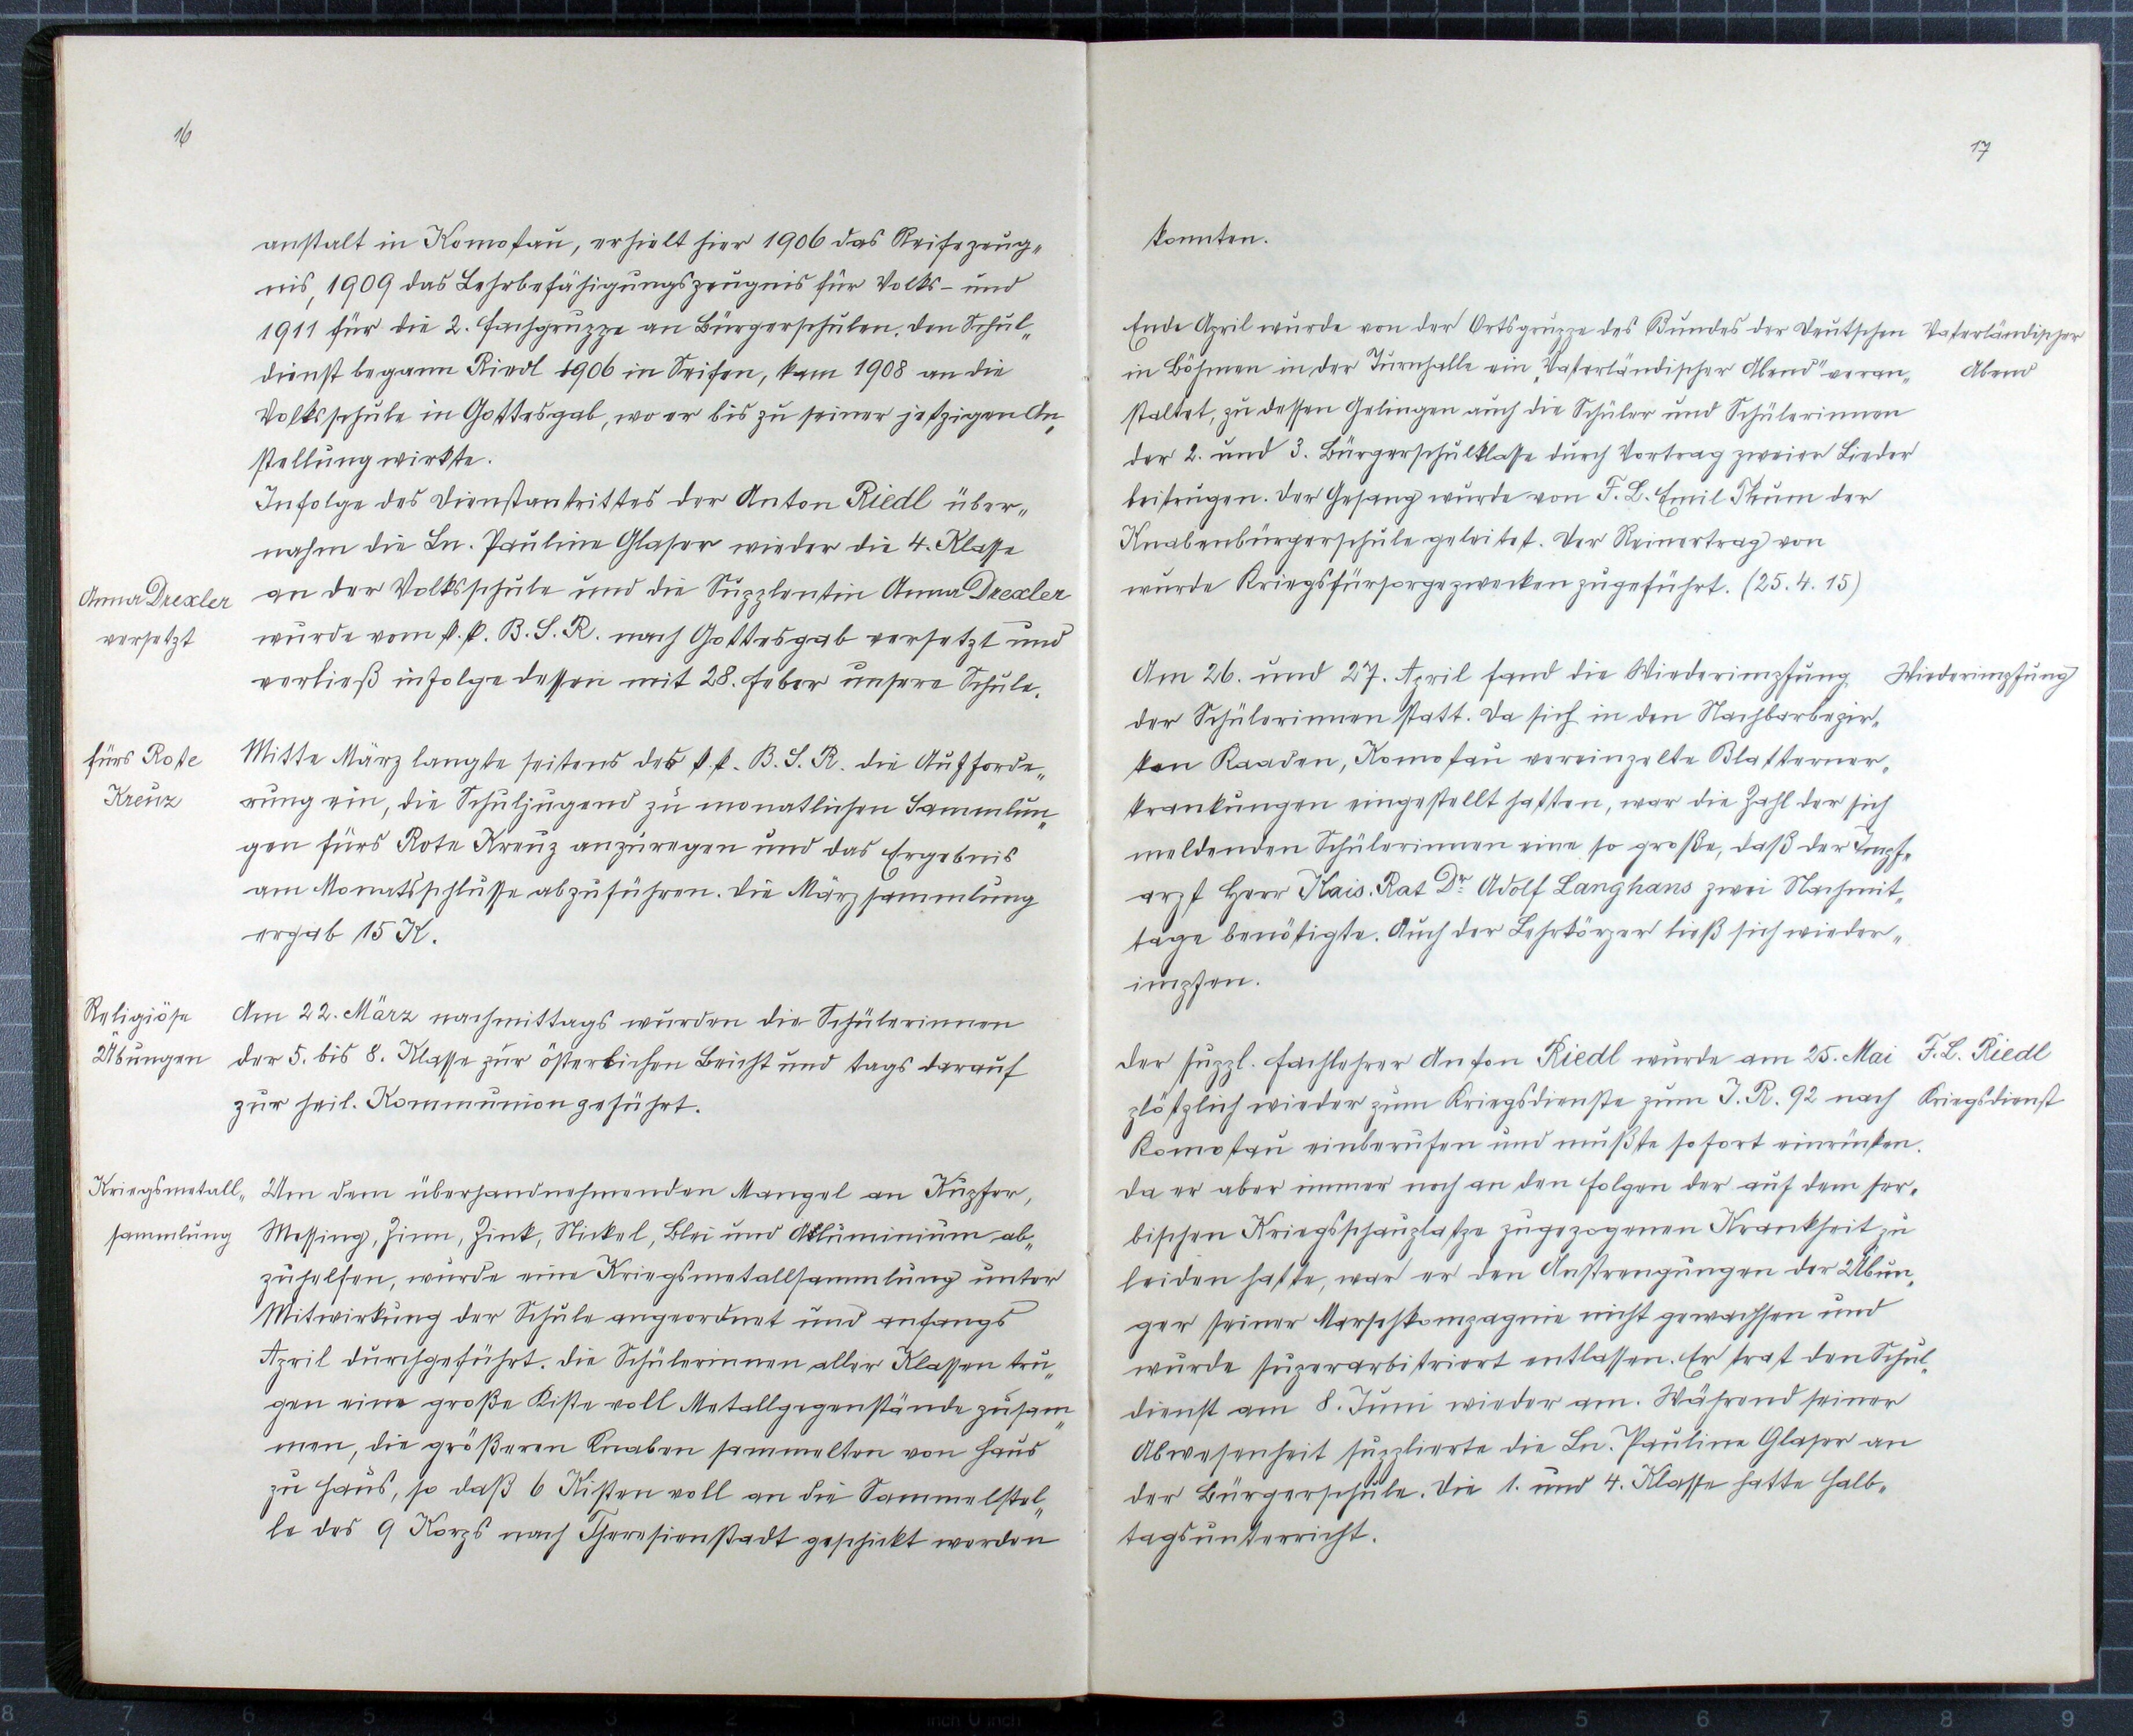 16
anstalt in Komotau, erhielt hier 1906 das Reifezeug„
nis, 1909 das Lehrbefähigungszeugnis für Volks- und
1911 für die 2. Fachgruppe an Bürgerschulen. Den Schul„
dienst begann Riedl 1906 in Seifen, kam 1908 an die
Volksschule in Gottesgab, wo er bis zu seiner jetzigen An„
stellung wirkte.
Infolge des Dienstantrittes der Anton Riedl über„
nahm die Ln. Pauline Glaser wieder die 4. Klasse
Anna Drexler
versetzt
an der Volksschule und die Supplentin Anna Drexler
wurde vom k.k. B.S.R. nach Gottesgab versetzt und
verließ infolge dessen mit 28. Feber unsere Schule.
fürs Rote
Kreuz
Mitte März langte seitens des k.k. B.S.R. die Aufforde„
rung ein, die Schuljugend zu monatlichen Sammlun„
gen fürs Rote Kreuz anzuregen und das Ergebnis
am Monatsschlusse abzuführen. Die Märzsammlung
ergab 15 K.
Religiöse
Übungen
Am 22. März nachmittags wurden die Schülerinnen
der 5. bis 8. Klasse zur österlichen Beicht und tags darauf
zur heil. Kommunion geführt.
Kriegsmetall„
sammlung
Um dem überhandnehmenden Mangel an Kupfer,
Messing, Zinn, Zink, Nickel, Blei und Alluminium ab„
zuhelfen, wurde eine Kriegsmetallsammlung unter
Mitwirkung der Schule angeordnet und anfangs
April durchgeführt. Die Schülerinnen aller Klassen tru„
gen eine große Kiste voll Metallgegenstände zusam„
men, die größeren Knaben sammelten von Haus
zu Haus, so daß 6 Kisten voll an die Sammelstel„
le des 9 Korps nach Theresienstadt geschickt werden
17
konnten.
Ende April wurde von der Ortsgruppe des Bundes der Deutschen
in Böhmen in der Turnhalle ein „Vaterländischer Abend" veran„
staltet, zu dessen Gelingen auch die Schüler und Schülerinnen
der 2. und 3. Bürgerschulklasse durch Vortrag zweier Lieder
beitrugen. Der Gesang wurde von F.L. Emil Thum der
Knabenbürgerschule geleitet. Der Reinertrag von
wurde Kriegsfürsorgezwecken zugeführt. (25.4.15)
Vaterländischer
Abend
Am 26. und 27. April fand die Wiederimpfung
der Schülerinnen statt. Da sich in den Nachbarbezir„
ken Kaaden, Komotau vereinzelte Blatterner„
krankungen eingestellt hatten, war die Zahl der sich
meldenden Schülerinnen eine so große, daß der Impf„
arzt Herr Kais. Rat Dr. Adolf Langhans zwei Nachmit„
tage benötigte. Auch der Lehrkörper ließ sich wieder„
impfen.
Wiederimpfung
Der suppl. Fachlehrer Anton Riedl wurde am 25. Mai
plötzlich wieder zum Kriegsdienste zum I.R. 92 nach
Komotau einberufen und mußte sofort einrücken.
Da er aber immer noch an den Folgen der auf dem ser„
bischen Kriegsschauplatze zugezogenen Krankheit zu
leiden hatte, war er den Anstrengungen der Übun„
gen seiner Marschkompagnie nicht gewachsen und
wurde superarbitriert entlassen. Er trat den Schul„
dienst am 8. Juni wieder an. Während seiner
Abwesenheit supplierte die Ln. Pauline Glaser an
der Bürgerschule. Die 1. und 4. Klasse hatte Halb„
tagsunterricht.
F.L. Riedl
Kriegsdienst